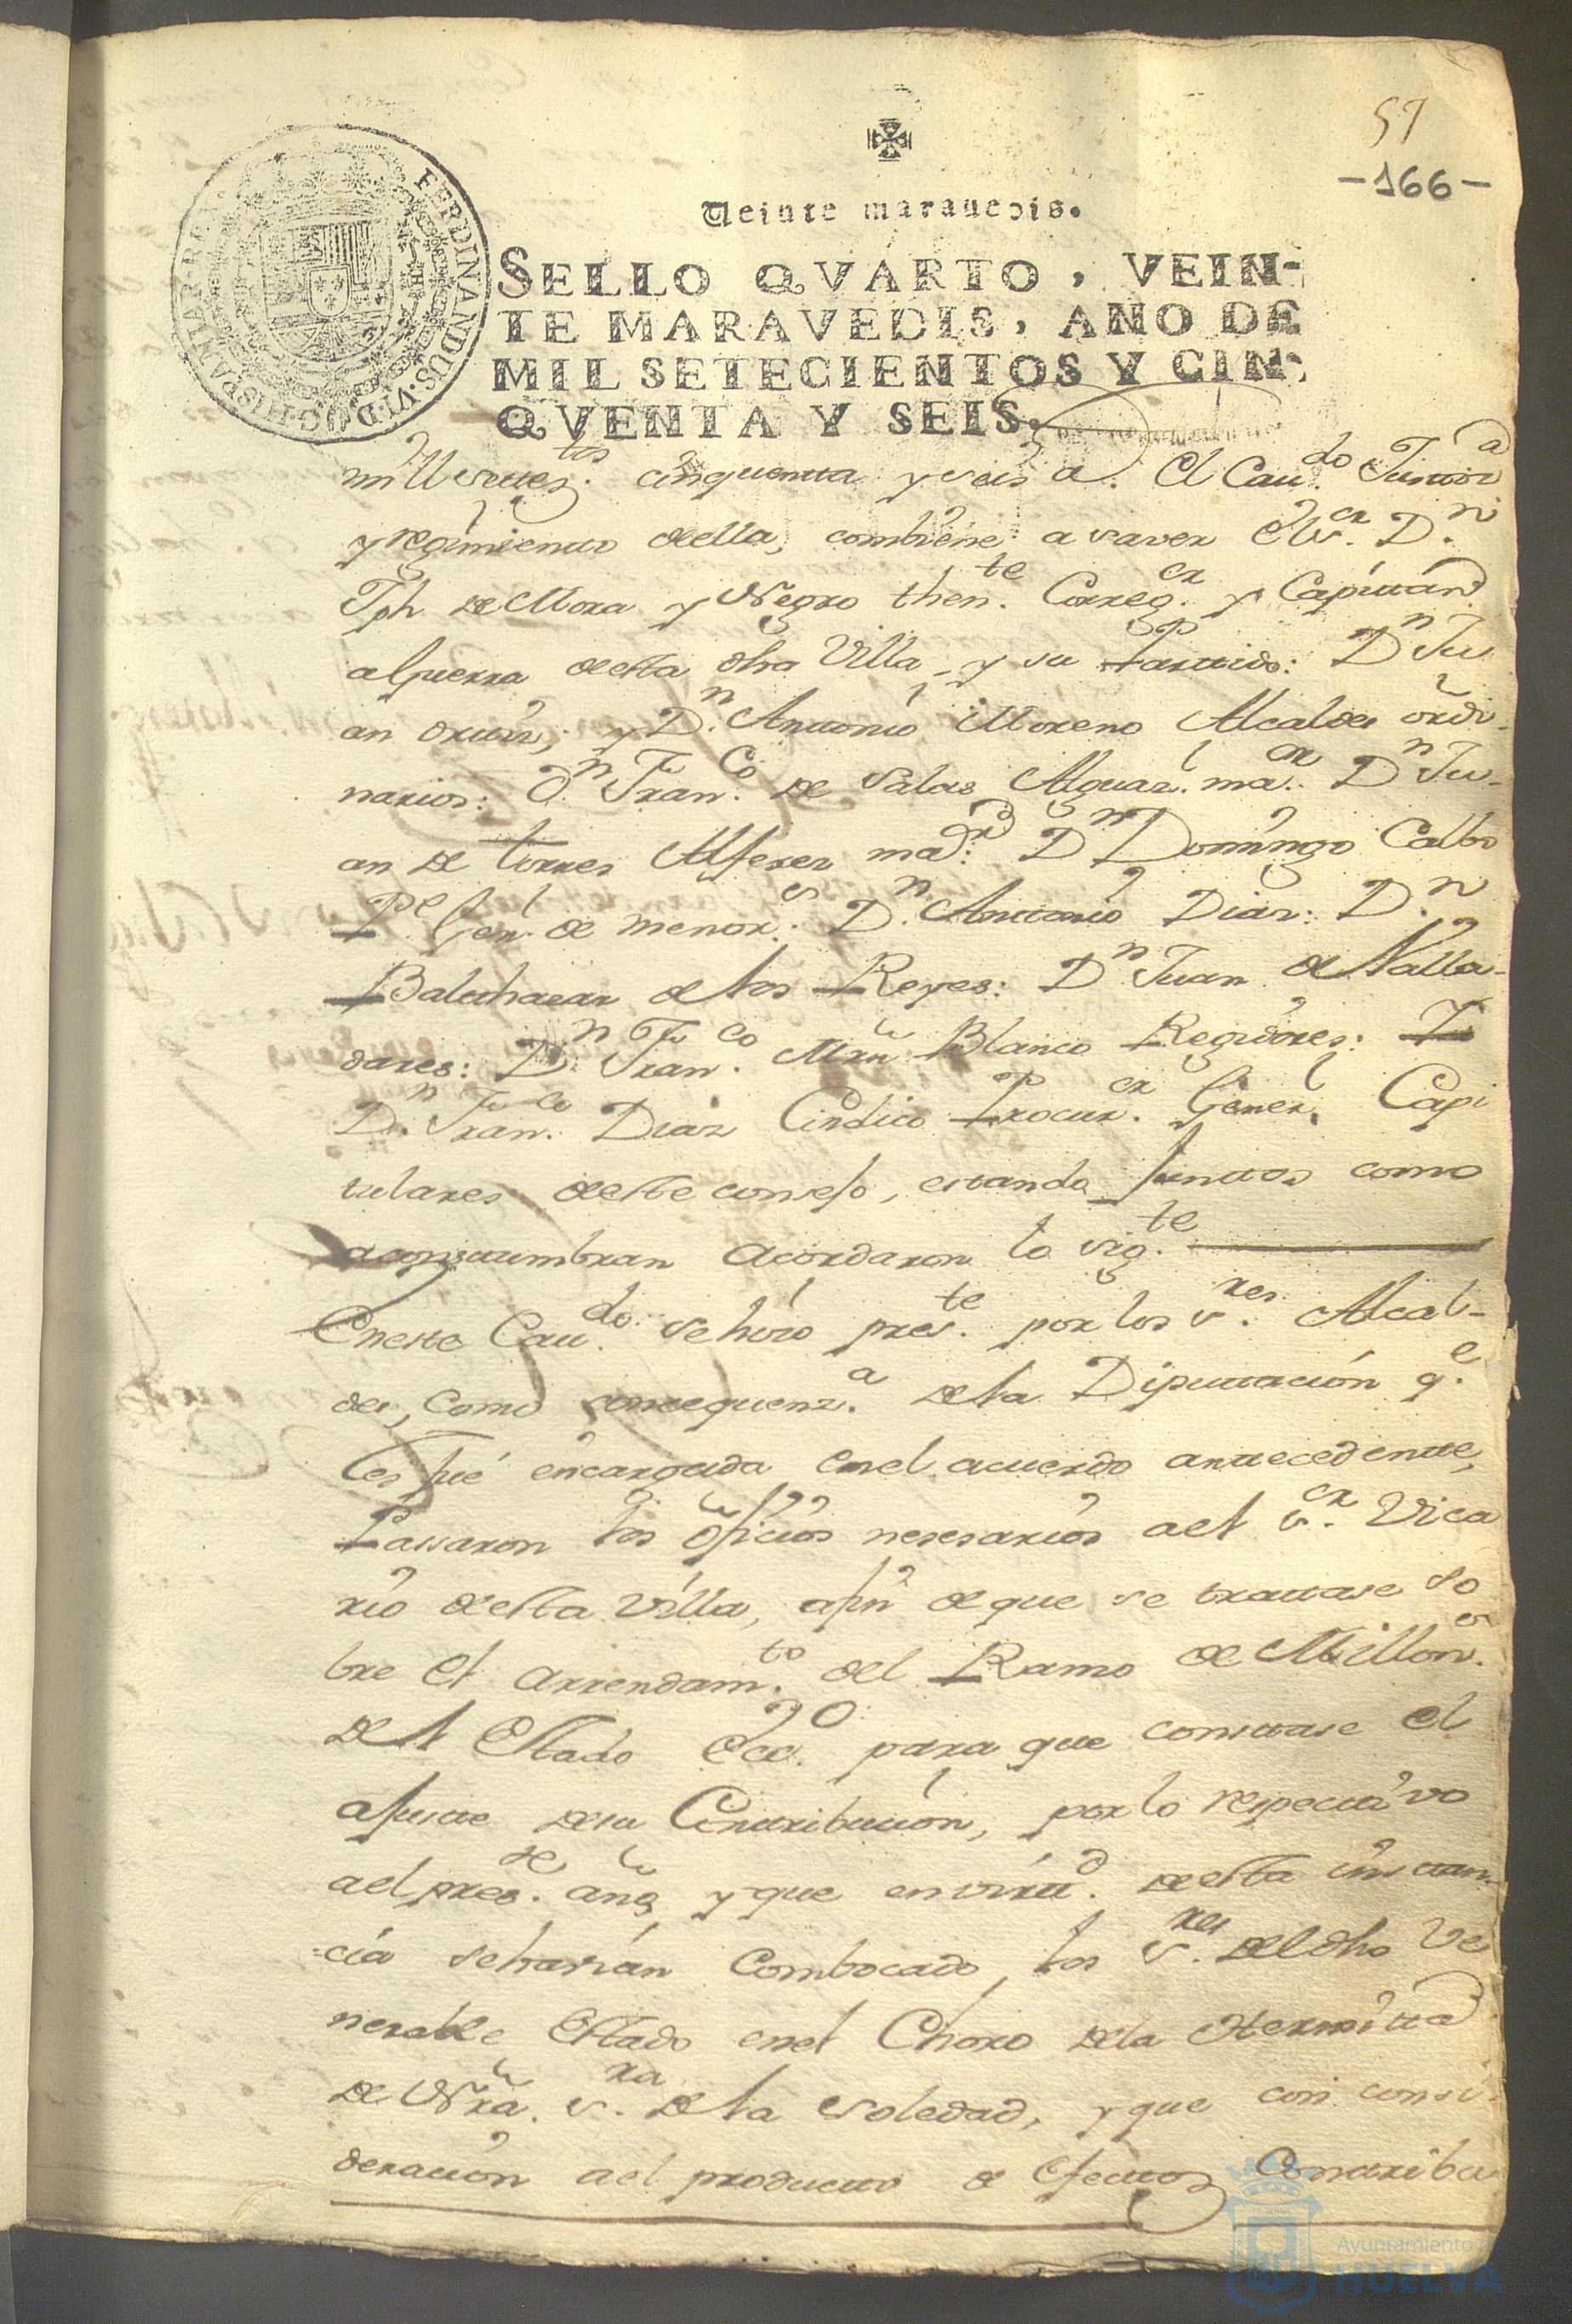 57
-166-
Veinte maravedis.
SELLO QVARTO, VEIN-
TE MARAVEDIS, AÑO DE
MIL SETECIENTOS Y CIN-
QVENTA Y SEIS.
FERDINANDUS·VI·D·G·HISPANIAR·REX·
mill settes.tos cinquentta y seis a. El Cau.do Justtiza
y regimientto della, combiene a saver el s.or D.n
Jph de Mora y Negro then.te Correg.or y Capittan
a guerra desta dha Villa, y su Parttido: D.n Ju
an ortiz; y D.n Anttonio Moreno Alcaldes ordi-
narios: D.n Fran.co de Salas Alguaz.l ma.or D.n Ju-
an de Torres Alferez ma.or: D.n Domingo Calbo
P.e Gen.l de menor.s: D.n Anttonio Diaz: D.n
Balthazar de los Reyes: D.n Juan de Valla-
dares: D.n Fran.co Mrn Blanco Regidores: Y
D.n Fran.co Diaz Cindico Procur.or Gener.l Capi
tulares deste consejo, estando junttos como
aconsttumbran acordaron lo sig.te
Eneste Cau.do se hizo pres.te por los s.res Alcal-
des, como consequenz.a de la Diputtacion q.e
les fué encargada enel acuerdo anttecedentte,
Passaron los oficios nesesarios ael s.or Vica
rio desta Villa, afin de que se trattase so
bre el arrendam.to del Ramo de Millon.s
del Estado Ecc.o para que consttase el
ajustte desu Conttribucion, por lo respecttivo
ael pres.te año y que en virtt.d desta insttan-
cia se havian Combocado los s.res del dho Ve
nerable Estado enel Choro dela Hermitta
de Nra. s.ra de la Soledad, y que con consi-
deracion ael productto de efecttos Conttribu
Ayuntamiento de
HUELVA